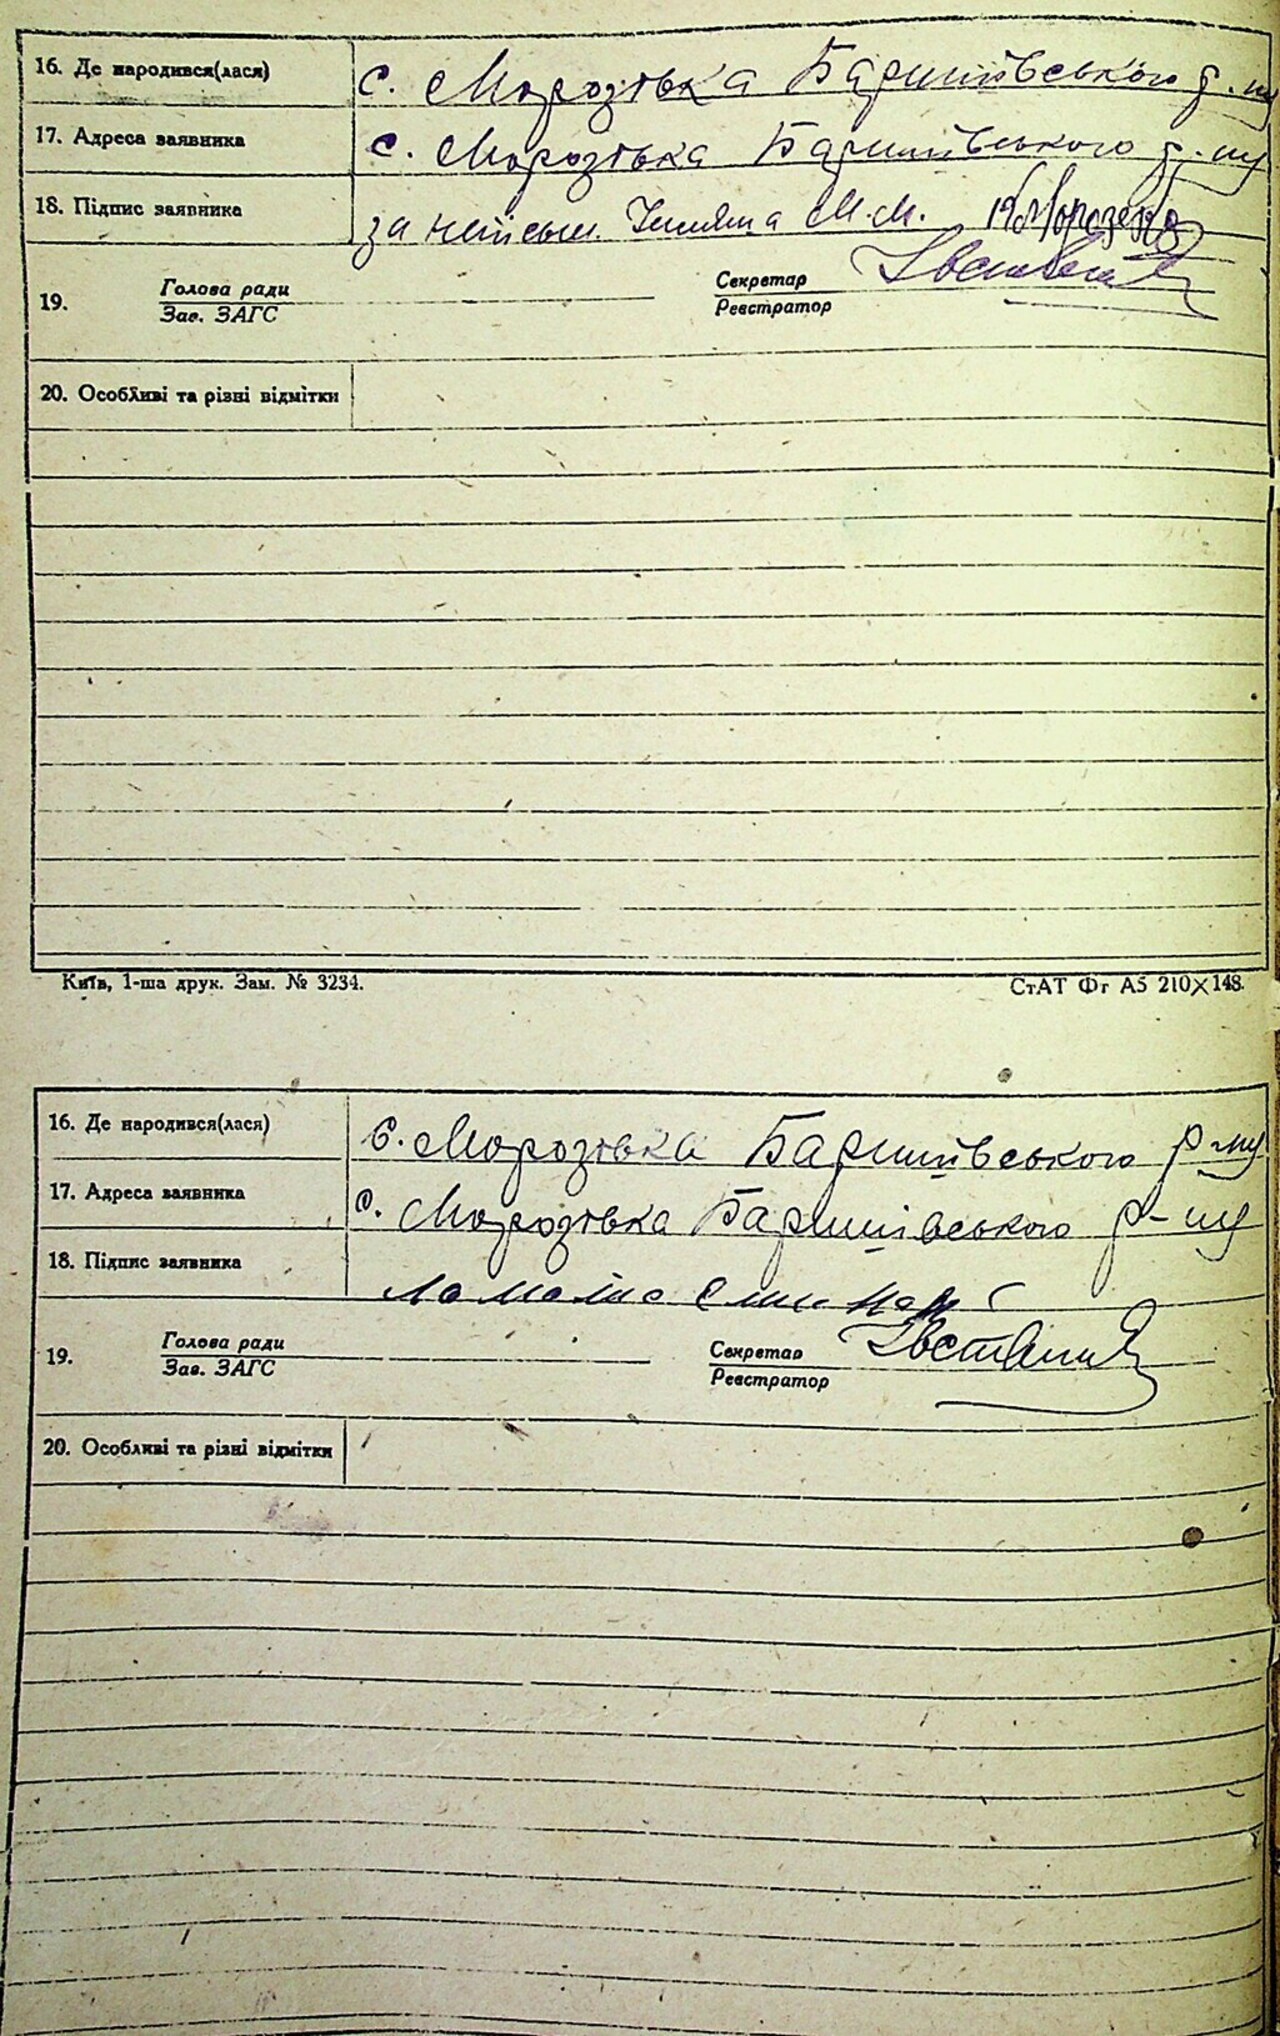 16. Де народився(лася) с. Морозівка Баришівського р-ну
17. Адреса заявника с. Морозівка Баришівського р-ну
18. Підпис заявника за М.М.
19. Голова ради Секретар
Зав. ЗАГС Реєстратор
20. Особливі та різні відмітки
Київ, 1-ша друк. Зам. № 3234. СтАТ Фг А5 210×148.
16. Де народився(лася) с. Морозівка Баришівського р-ну
17. Адреса заявника с. Морозівка Баришівського р-ну
18. Підпис заявника
19. Голова ради Секретар
Зав. ЗАГС Реєстратор
20. Особливі та різні відмітки